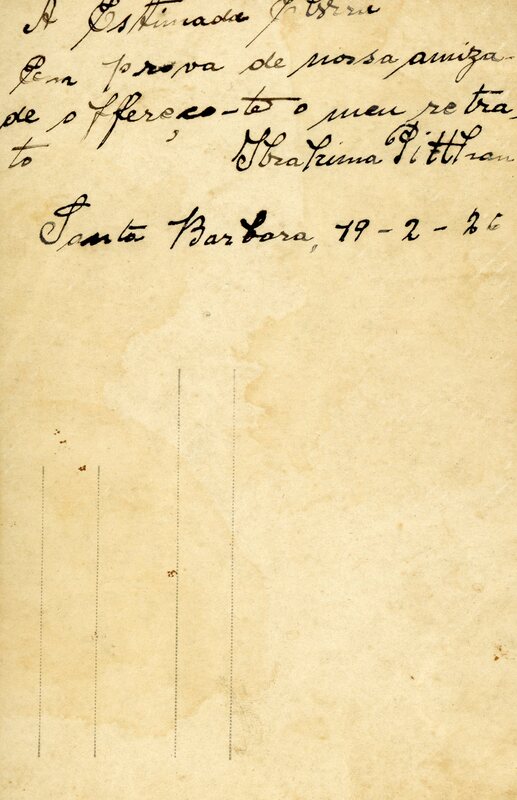 A Estimada
Em prova de nossa amiza-
de offereço-te o meu retra-
to Ibrahima
Santa Barbara, 19-2-26